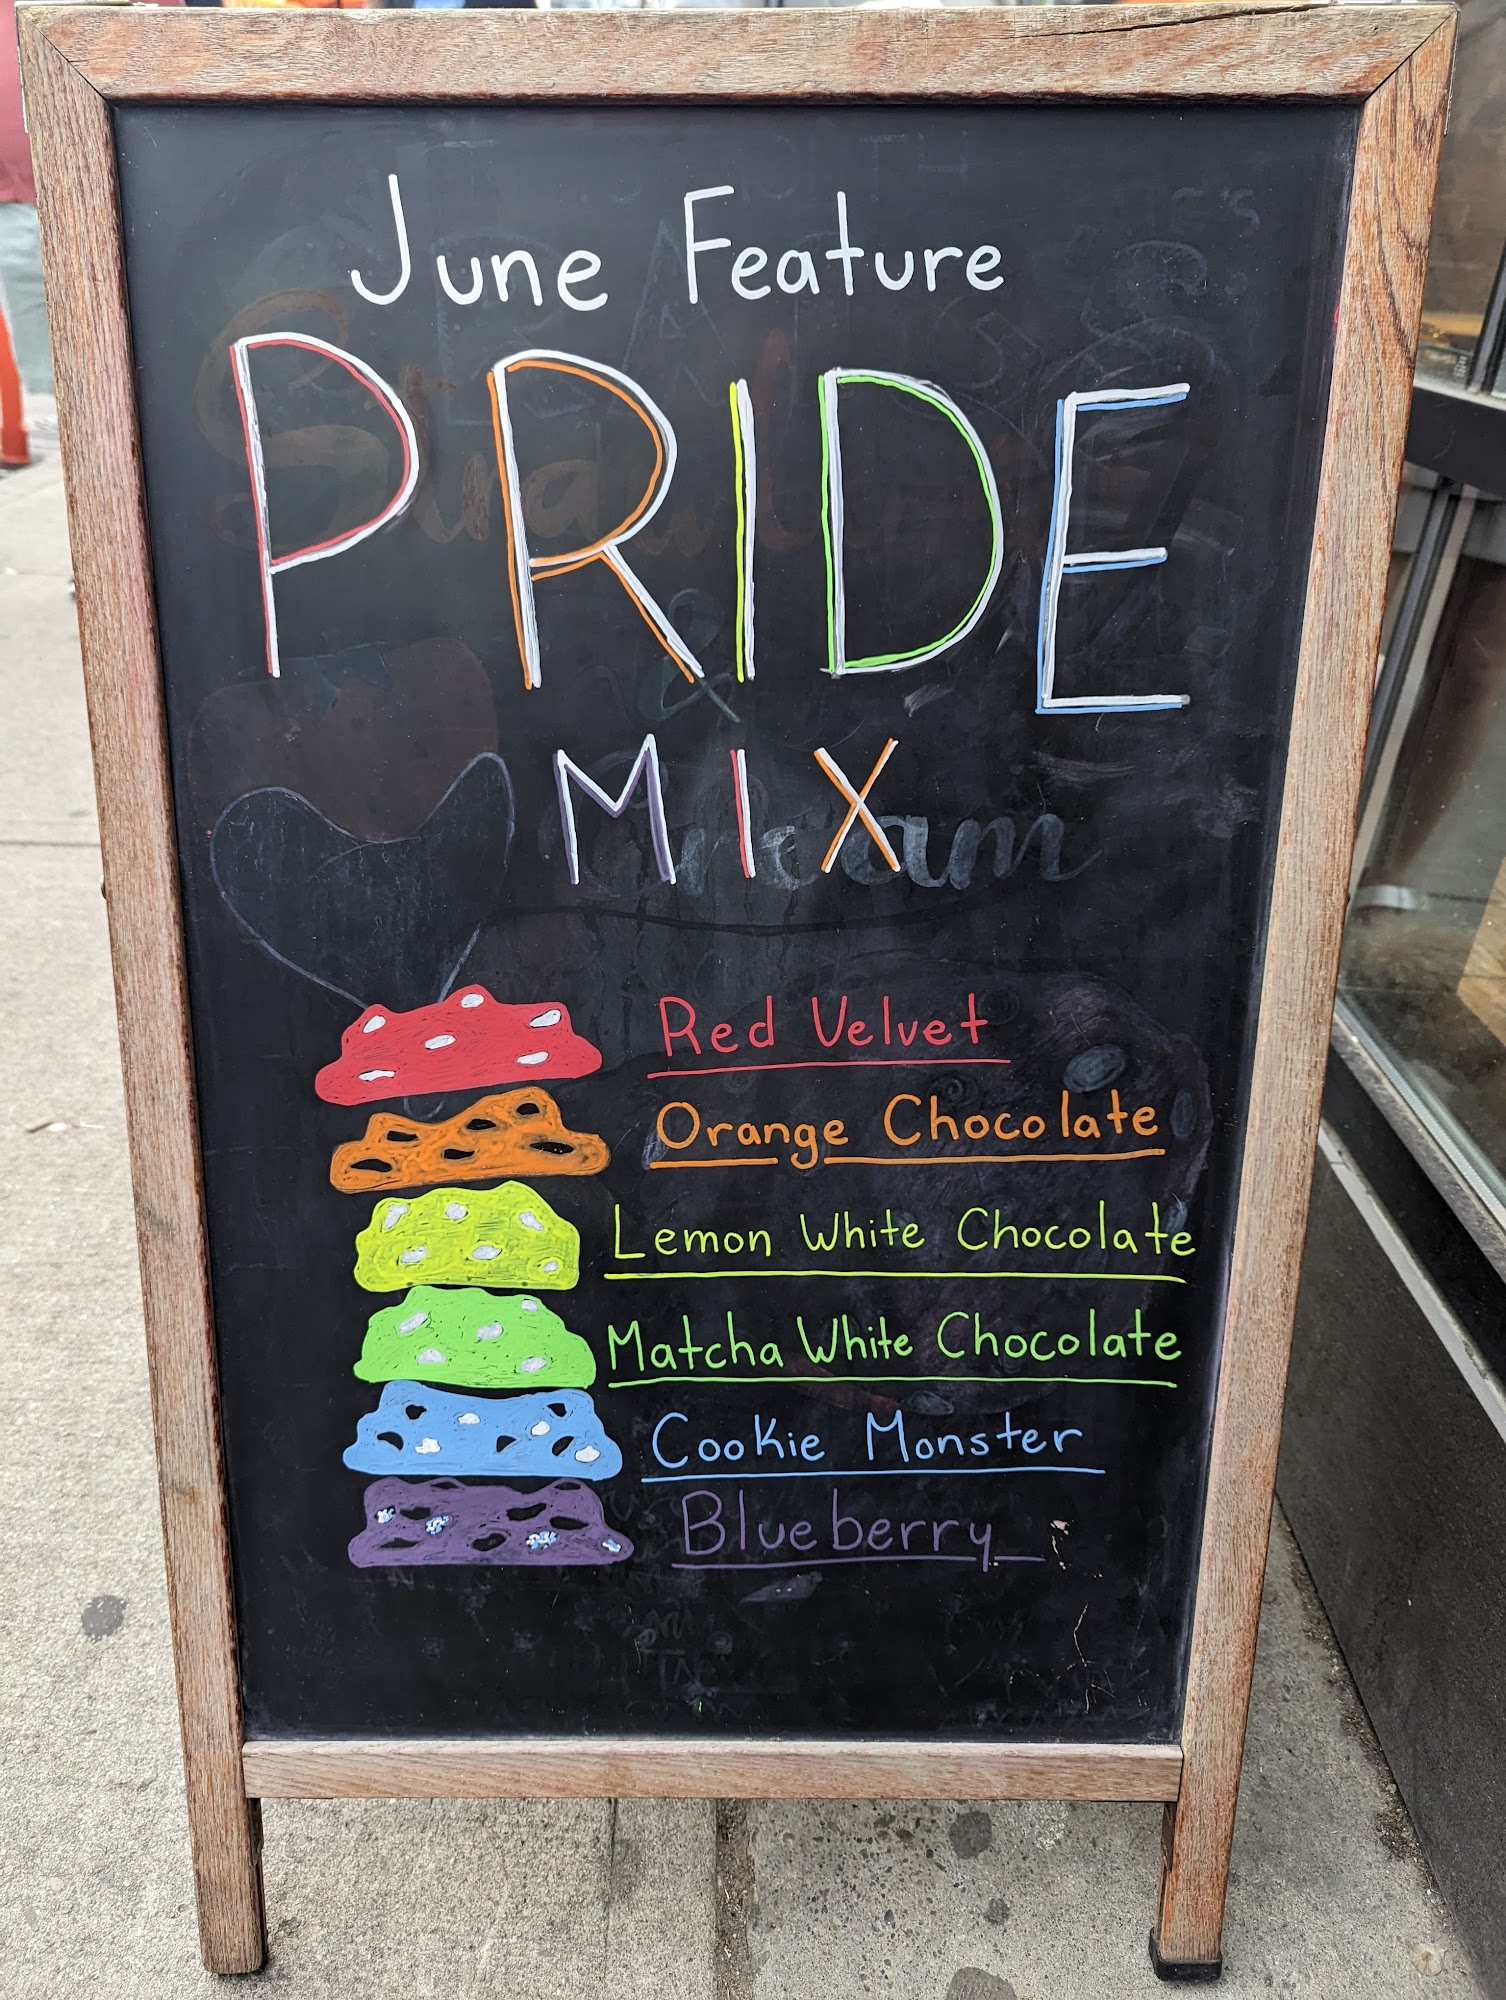 June Feature
PRIDE
MIX
Red Velvet
Orange Chocolate
Lemon White Chocolate
Matcha White Chocolate
Cookie Monster
Blueberry